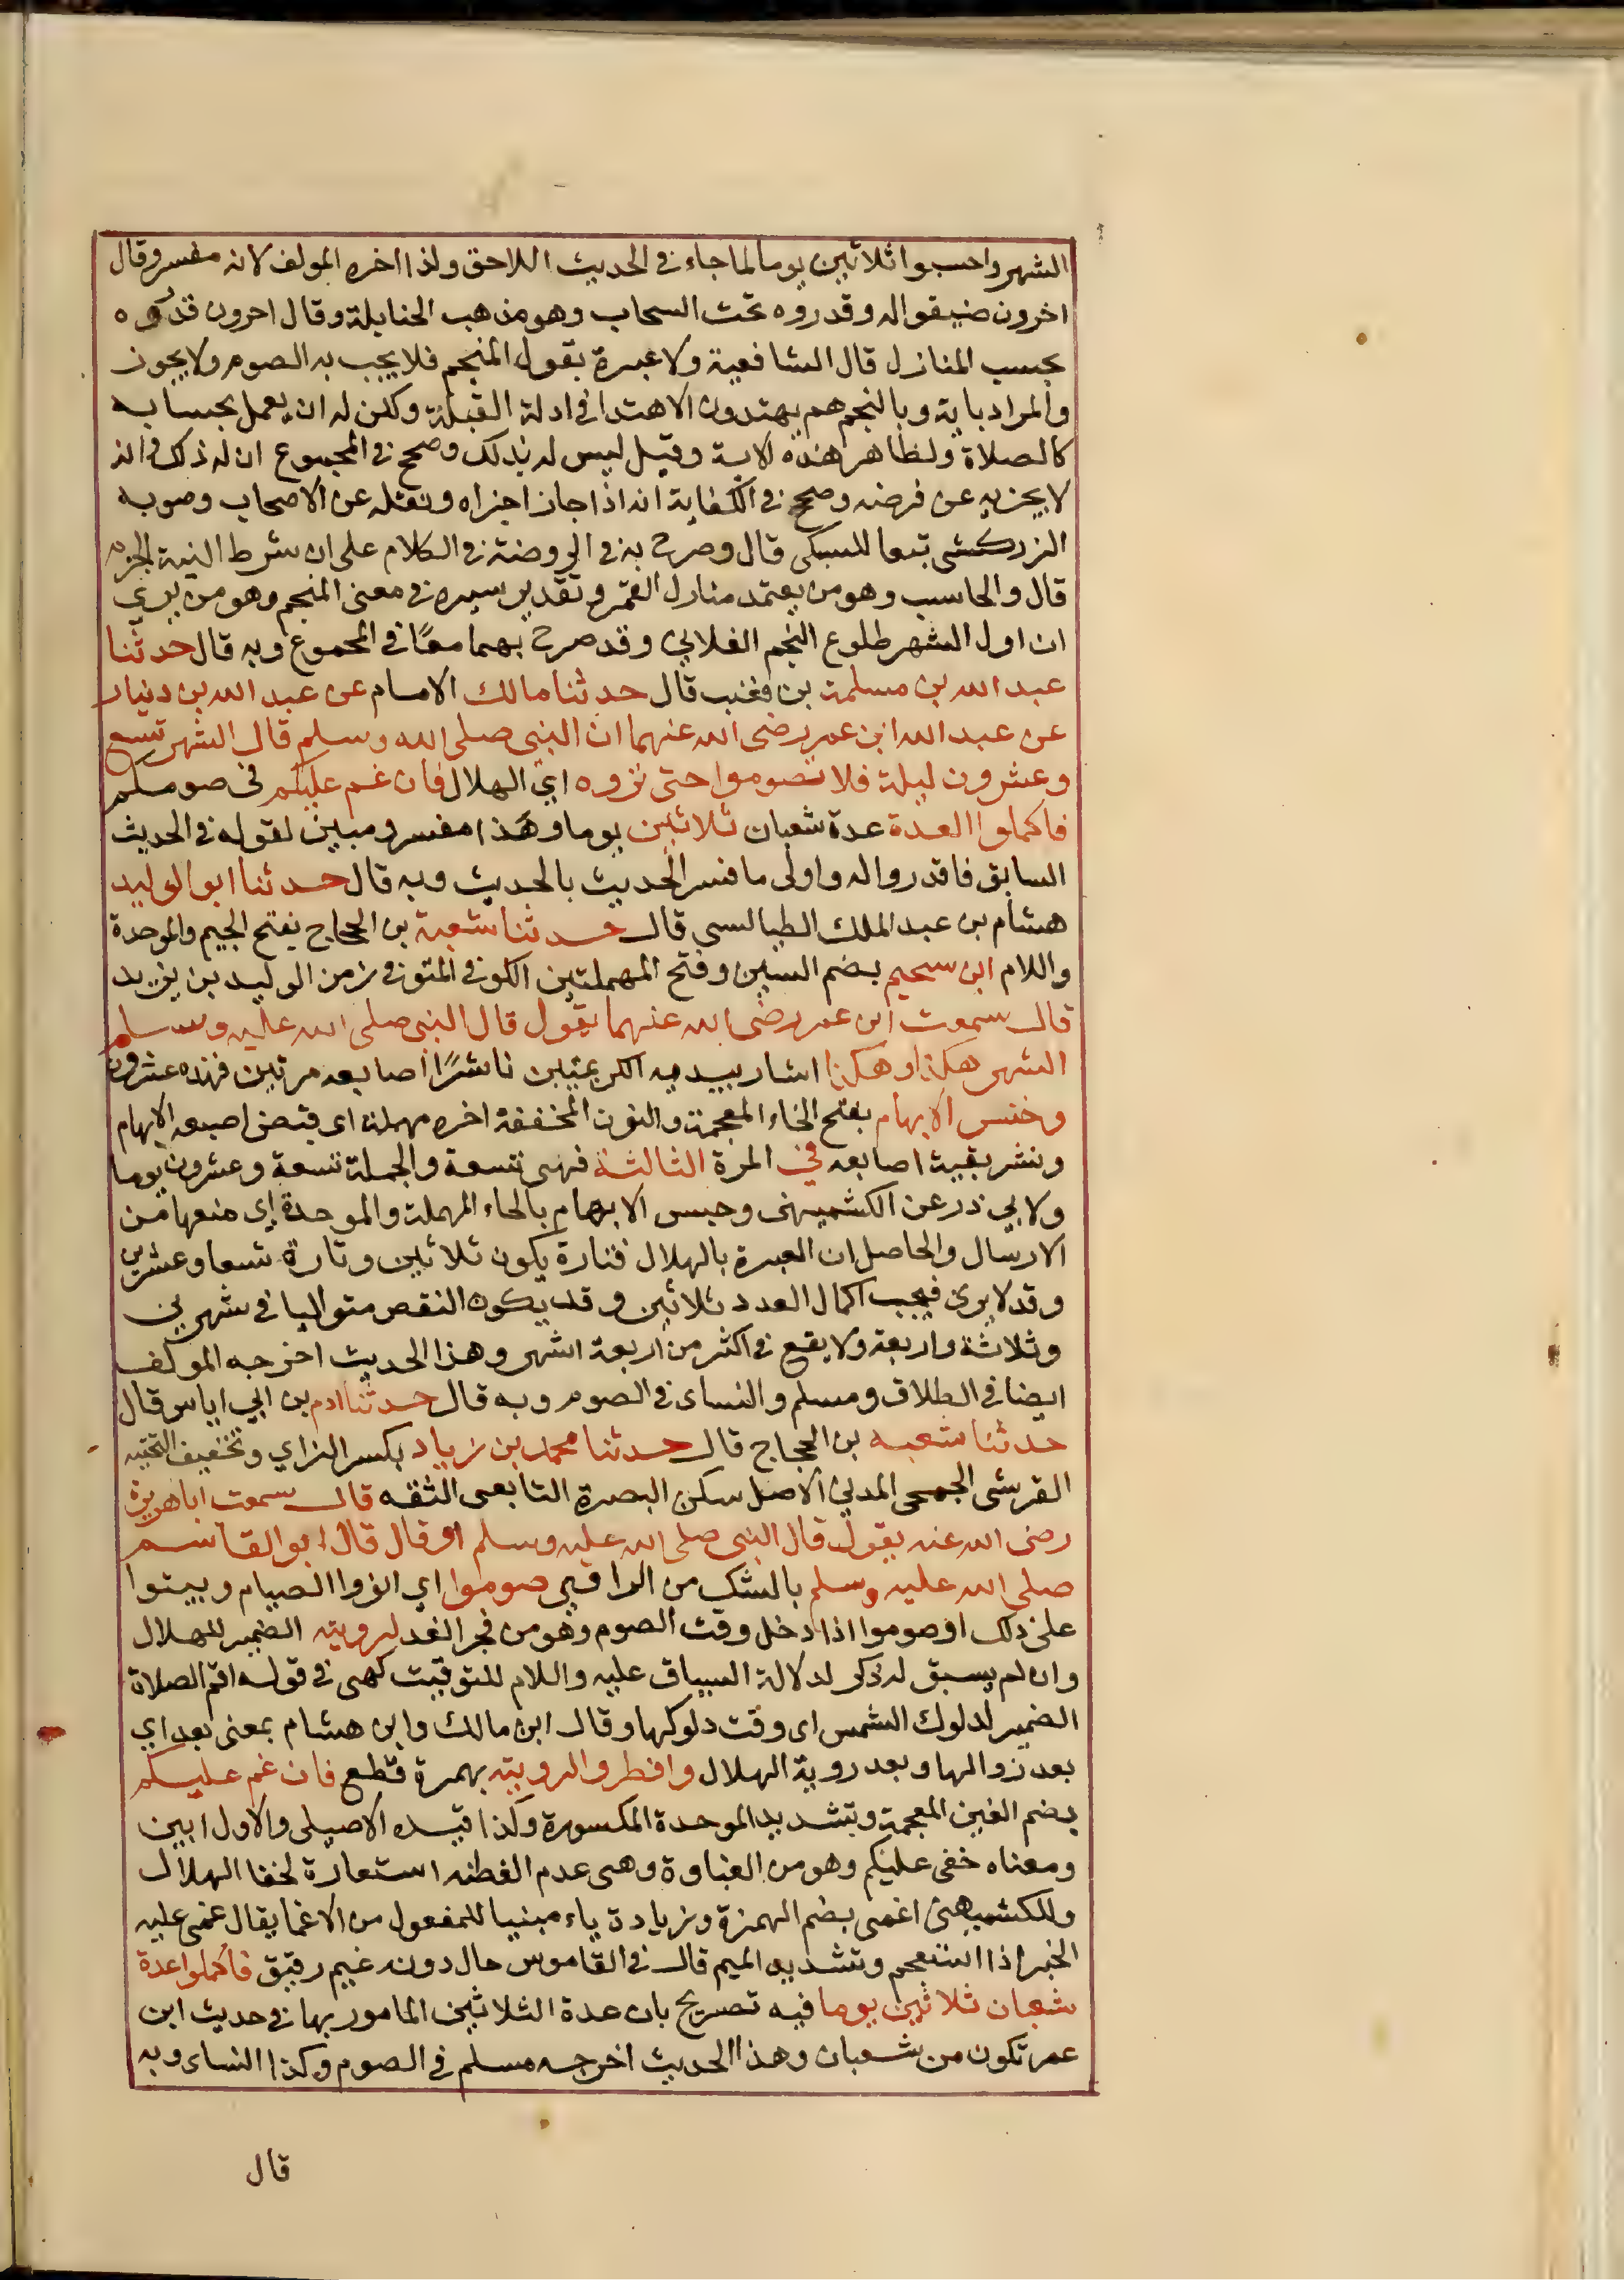 الشهر واحسبوا ثلاثين يوما لما جاء في الحديث اللاحق ولذا اخره المولف لانه مفسر وقال
اخرون ضيقوا له وقدروه تحت السحاب وهو مذهب الحنابلة وقال اخرون قدروه
بحسب المنازل قال الشافعية ولا عبرة بقول المنجم فلا يجب به الصوم ولا يجوز
والمراد باية وبالنجم هم يهتدون الاهتدا في ادلة القبلة ولكن له ان يعمل بحسابه
كالصلاة ولظاهر هذه الاية وقيل ليس له ذلك وصحح في المجموع ان له ذلك وانه
لا يجزيه عن فرضه وصحح في الكفاية انه اذا جاز اجزاه ونقله عن الاصحاب وصوبه
الزركشي تبعا للسبكي قال وصرح به في الروضة في الكلام على ان شرط النية الجزم
قال والحاسب وهو من يعتمد منازل القمر وتقدير سيره في معنى المنجم وهو من يري
ان اول الشهر طلوع النجم الفلاني وقد صرح بهما معًا في المجموع وبه قال حدثنا
عبد الله بن مسلمة بن قعنب قال حدثنا مالك الامام عن عبد الله بن دينار
عن عبد الله ابن عمر رضى الله عنهما ان النبي صلى الله وسلم قال الشهر تسع
وعشرون ليلة فلا تصوموا حتى تروه اي الهلال فان غم عليكم في صومكم
فاكملوا العدة عدة شعبان ثلاثين يوما وهذا مفسر ومبين لقوله في الحديث
السابق فاقدروا له واولى ما فسر الحديث بالحديث وبه قال حدثنا ابو الوليد
هشام بن عبد الملك الطيالسي قال حدثنا شعبة بن الحجاج بفتح الجيم والموحدة
واللام ابن سحيم بضم السين وفتح المهملتين الكوفي المتوفي زمن الوليد بن يزيد
قال سمعت ابن عمر رضى الله عنهما يقول قال النبي صلى الله عليه وسلم
الشهر هكذا وهكذا اشار بيديه الكريمتين ناشرًا اصابعه مرتين فهذه عشرون
وخنس الابهام بفتح الخاء المعجمة والنون المخففة اخره مهملة اى قبض اصبعه الابهام
ونشر بقية اصابعه في المرة الثالثة فهى تسعة والجملة تسعة وعشرون يوما
ولابي ذر عن الكشميهنى وحبس الابهام بالحاء المهملة والموحدة اي منعها من
الارسال والحاصل ان العبرة بالهلال فتارة يكون ثلاثين وتارة تسعا وعشرين
وقد لا يرى فيجب اكمال العدد ثلاثين وقد يكون النقص متواليا في شهرين
وثلاثة واربعة ولا يقع في اكثر من اربعة اشهر وهذا الحديث اخرجه المولف
ايضا في الطلاق ومسلم والنساى في الصوم وبه قال حدثنا ادم بن ابي اياس قال
حدثنا شعبه بن الحجاج قال حدثنا محمد بن زياد بكسر الزاي وتخفيف التحتيه
القرشى الجمحى المدني الاصل سكن البصرة التابعى الثقه قال سمعت ابا هريرة
رضى الله عنه يقول قال النبي صلى الله عليه وسلم او قال قال ابو القاسم
صلى الله عليه وسلم بالشك من الراوي صوموا اي انووا الصيام وبيتوا
على ذلك او صوموا اذا دخل وقت الصوم وهو من فجر الغد لرويته الضمير للهلال
وان لم يسبق له ذكر لدلالة السياق عليه واللام للتوقيت كهى في قوله اقم الصلاة
الضمير لدلوك الشمس اى وقت دلوكها وقال ابن مالك وابن هشام بمعنى بعد اي
بعد زوالها وبعد روية الهلال وافطروا لرويته بهمرة قطع فان غم عليكم
بضم الغين المعجمة وبتشديد الموحدة المكسورة وكذا قيده الاصيلى والاول ابين
ومعناه خفى عليكم وهو من الغباوة وهى عدم الفطنه استعارة لخفا الهلال
وللكشميهنى اغمى بضم الهمزة وزيادة ياء مبنيا للمفعول من الاغما يقال غمى عليه
الخبر اذا استعجم وتشديد الميم قال في القاموس حال دونه غيم رقيق فاكملوا عدة
شعبان ثلاثين يوما فيه تصريح بان عدة الثلاثين المامور بها في حديث ابن
عمر تكون من شعبان وهذا الحديث اخرجه مسلم في الصوم وكذا النساى وبه
قال